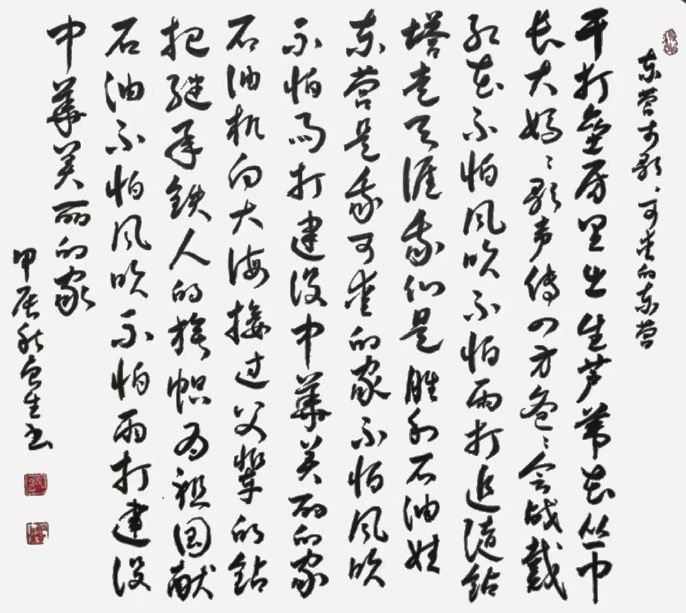 东营市歌、可爱的东营
干打壘房里出生芦苇花丛中
长大妈妈歌声传四方爸爸会战戴
红花不怕风吹不怕雨打追随钻
塔走天涯我们是胜利石油娃
东营是我可爱的家不怕风吹
不怕雨打建设中華美丽的家
石油机向大海接过父辈的钻
把继承铁人的旗帜为祖国献
石油不怕风吹不怕雨打建设
中華美丽的家
甲辰秋生书